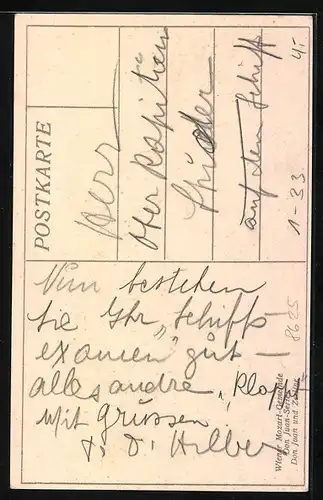 POSTKARTE
Herr
auf dem Schiff
Nun bestehen
Sie Ihr „Schiffs
examen" gut —
alles andre „
mit Grüssen
Wiener Mozart-Gemeinde
Don Juan-Serie
Don Juan und
8625
1-33
4,-